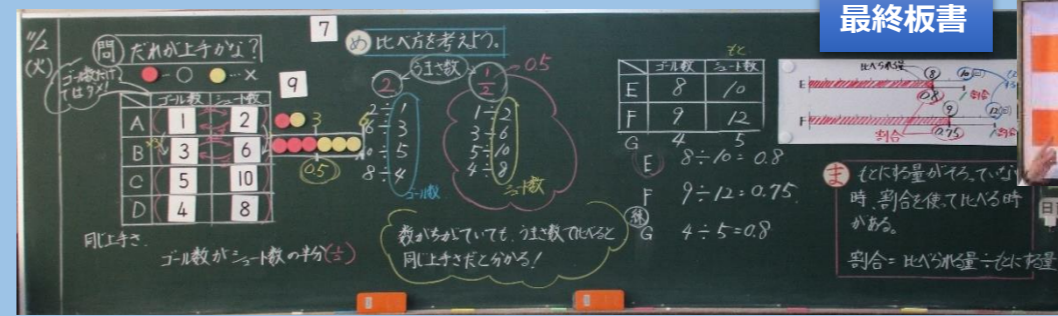 最終板書
11/2
(火)
問 だれが上手かな?
●…○ ●…×
ゴール数だけ
ではダメ!
7
9
ゴール数 シュート数
A 1 2
B 3 6
C 5 10
D 4 8
3
6
0.5
同じ上手さ
ゴール数がシュート数の半分(1/2)
め 比べ方を考えよう。
うまさ数
2
1/2
0.5
2÷1
6÷3
10÷5
8÷4
ゴール数
1÷2
3÷6
5÷10
4÷8
シュート数
数がちがていても、うまさ数で比べると
同じ上手さだと分かる!
もと
ゴール数 シュート数
E 8 10
F 9 12
G 4 5
E 8÷10=0.8
F 9÷12=0.75
練
G 4÷5=0.8
比べられる量
E 8 10
0.8 1 割合
F 9 12
割合 0.75 割合
ま もとにする量がそろっていない
時、割合を使って比べる時
がある。
割合=比べられる量÷もとにする量
日